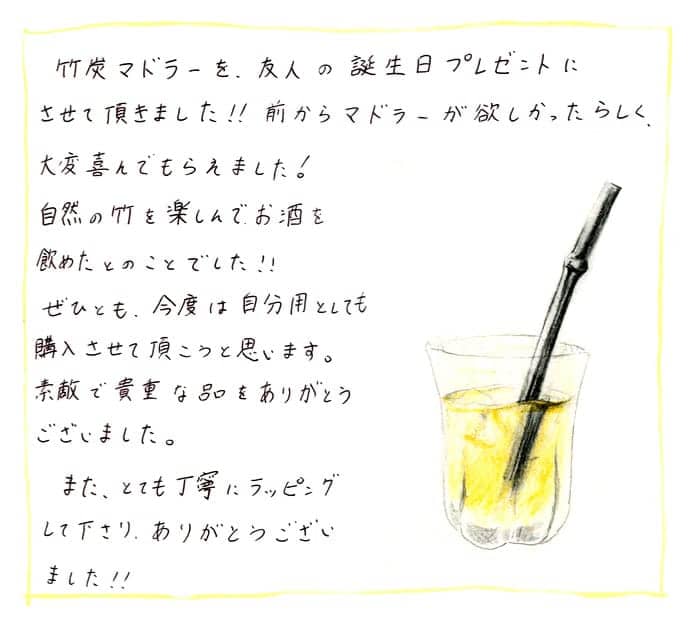 竹炭マドラーを、友人の誕生日プレゼントに
させて頂きました!! 前からマドラーが欲しかったらしく、
大変喜んでもらえました!
自然の竹を楽しんで、お酒を
飲めたとのことでした!!
ぜひとも、今度は自分用としても
購入させて頂こうと思います。
素敵で貴重な品をありがとう
ございました。
また、とても丁寧にラッピング
して下さり、ありがとうござい
ました!!